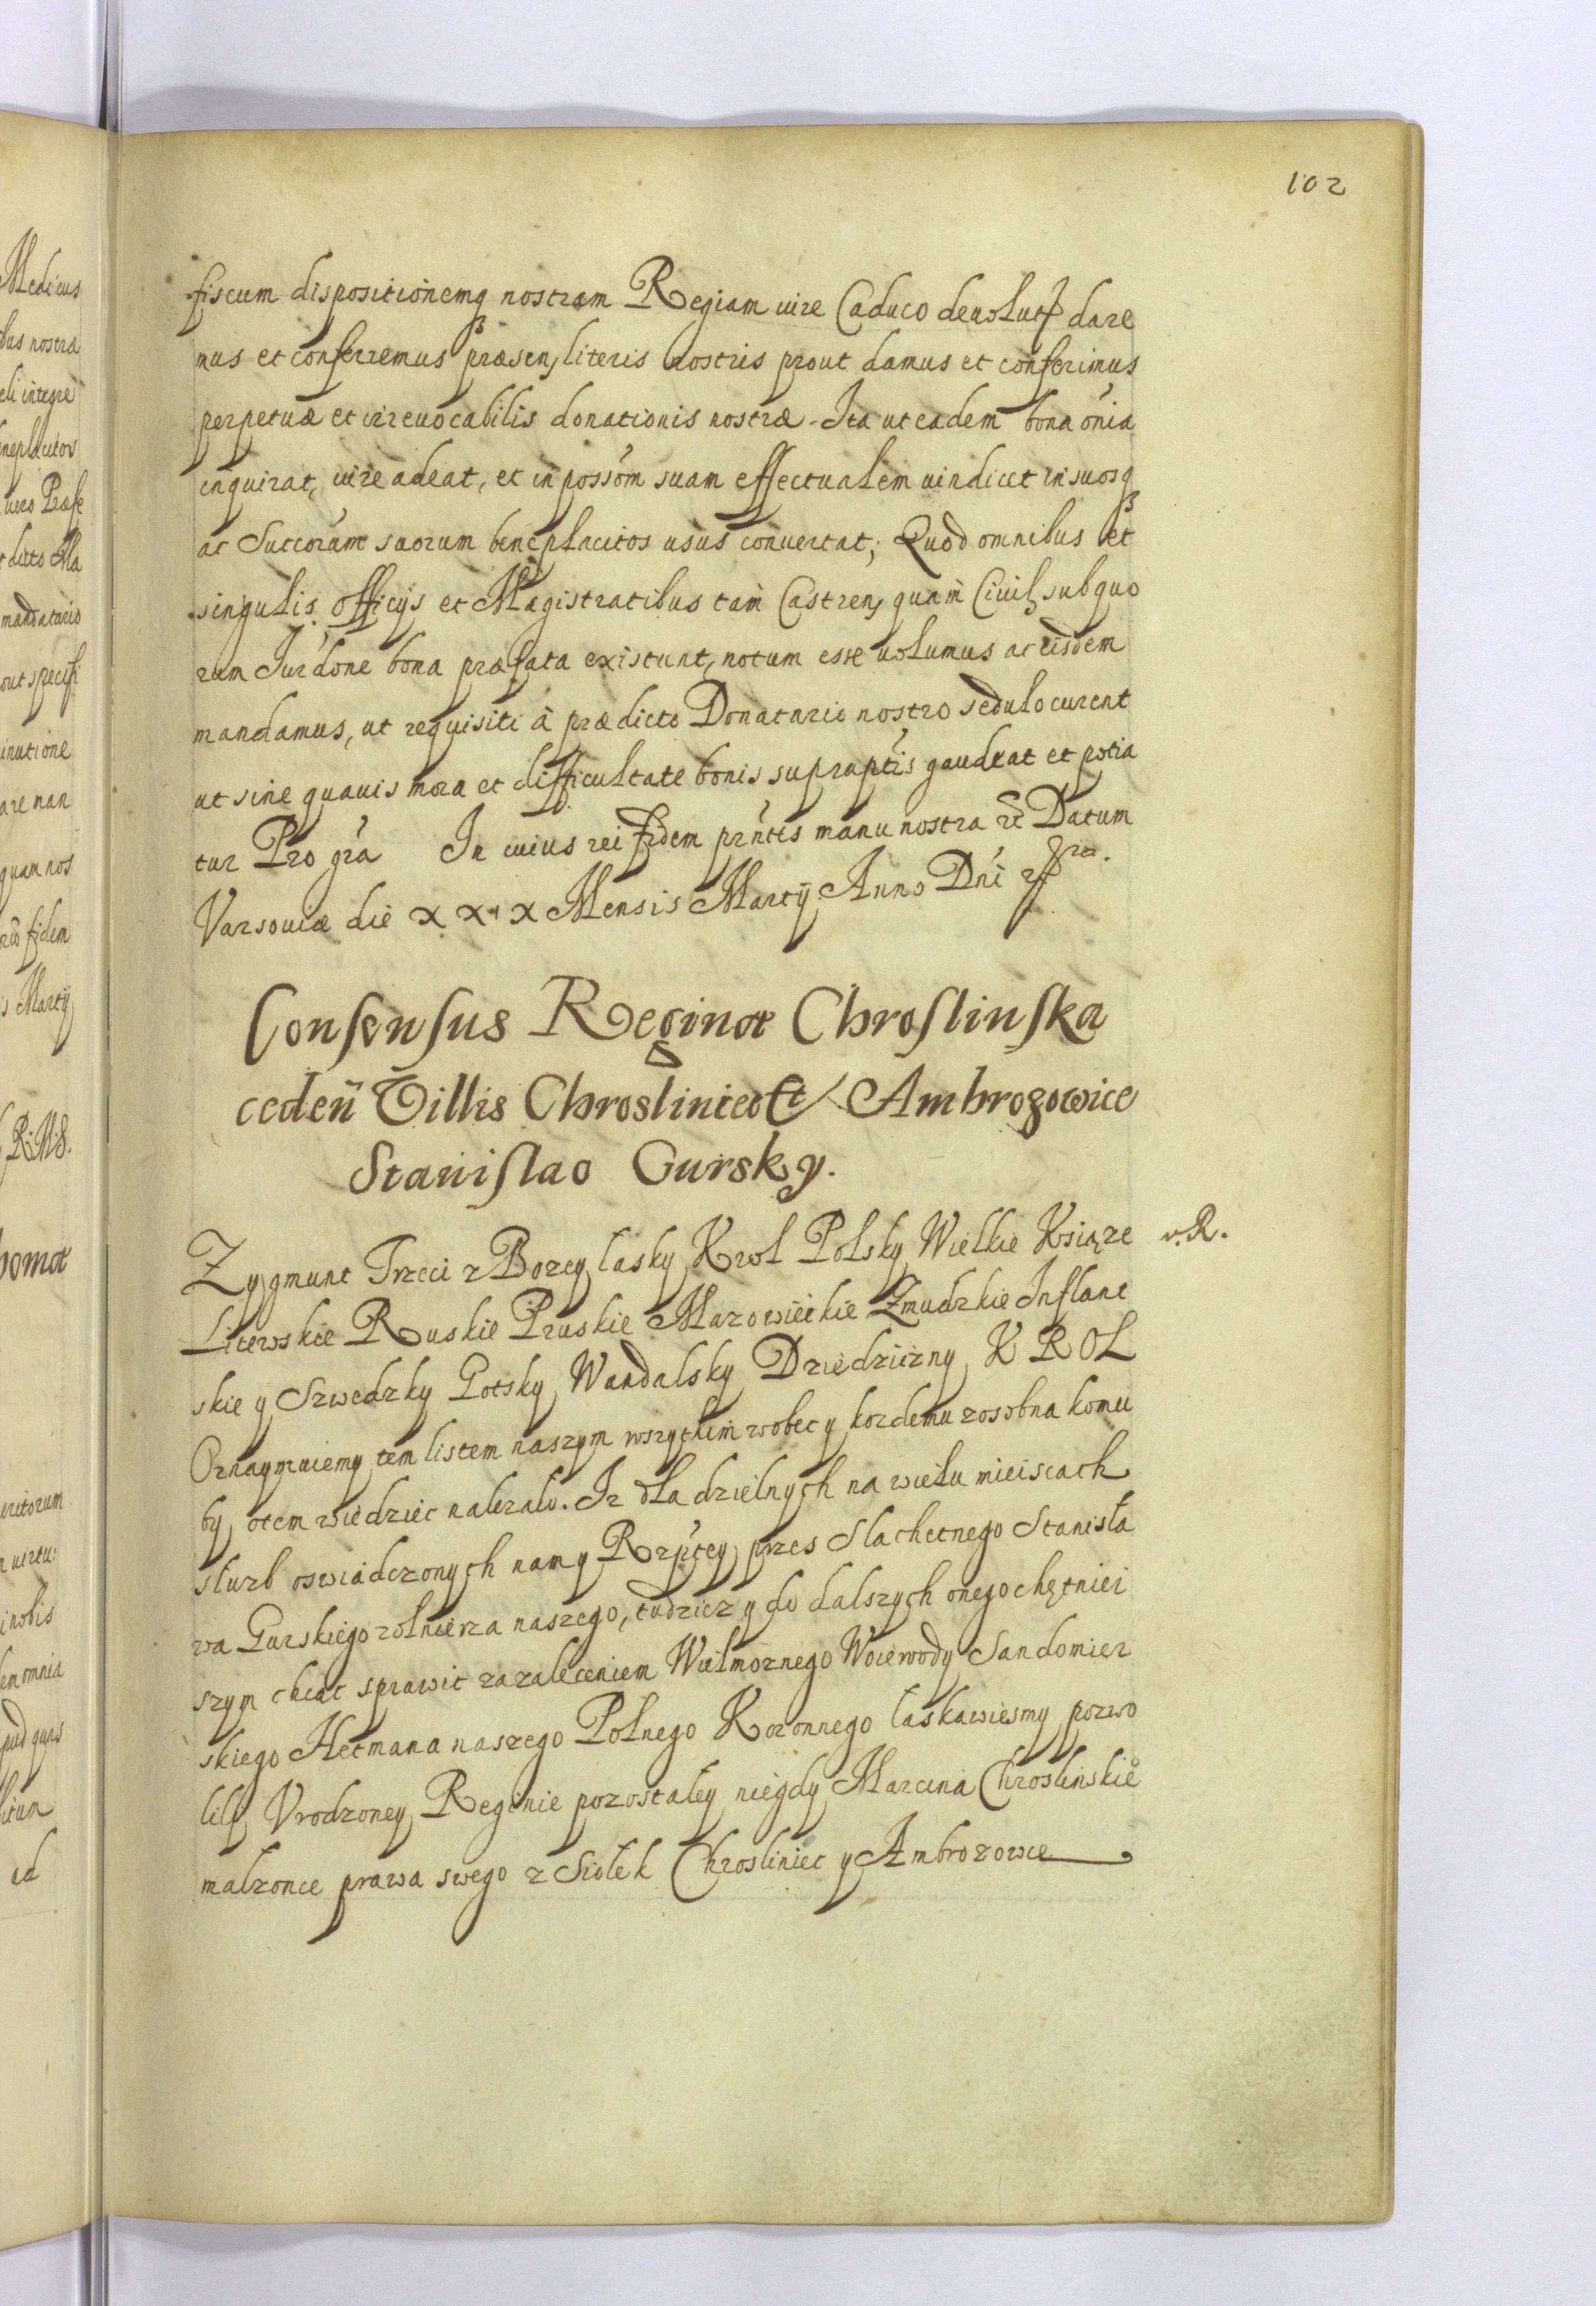 102
fiscum dispositionemq nostram Regiam iure Caduco deuolut dare
mus et conferremus præsen literis nostris prout damus et conferimus
perpetuæ et irreuocabilis donationis nostræ. Ita ut eadem bona oñia
inquirat, iure adeat, et in possom̃ suam effectualem uindicet in suosq
ac Succorum̃ suorum beneplacitos usus conuertat; Quod omnibus et
singulis officijs et Magistratibus tam Castren quam Ciuil sub quo
rum Jurdõne bona præfata existunt, notum esse uolumus ac eisdem
mandamus, ut requisiti à prædicto Donatario nostro sedulo curent
ut sine quauis mora et difficultate bonis supraptis gaudeat et potia
tur Pro gr̃a In cuius rei fidem prñtes manu nostra Datum
Varsouiæ die XXIX Mensis Martij Anno Dñi
Consensus Reginæ Chroslinska
cedeñ Villis Chrosliniec et Ambrozowice
Stanislao Gursky.
Zygmunt Trzeci z Bozey łasky Krol Polsky Wielkie Ksiąze v. R.
Litewskie Ruskie Pruskie Mazowieckie Zmudzkie Inflant
skie y Szwedzky Gotsky Wandalsky Dziedziczny KROL
Oznaymuiemy tem listem naszym wszytkim wobec y kozdemu zosobna komu
by otem wiedziec nalezalo. Iz dla dzielnych na wielu mieiscach
sluzb oswiadczonych nam y Rzptey przes Slachetnego Stanisła
wa Gurskiego zołnierza naszego, tudziez y do dalszych onego chętniei
szym chcąc sprawic za zaleceniem Wielmoznego Woiewody Sandomier
skiego Hetmana naszego Polnego Koronnego łaskawiesmy pozwo
lili Vrodzoney Reginie pozostałey niegdy Marcina Chroslinskie
małzonce prawa swego z Siołek Chrosliniec y Ambrozowce